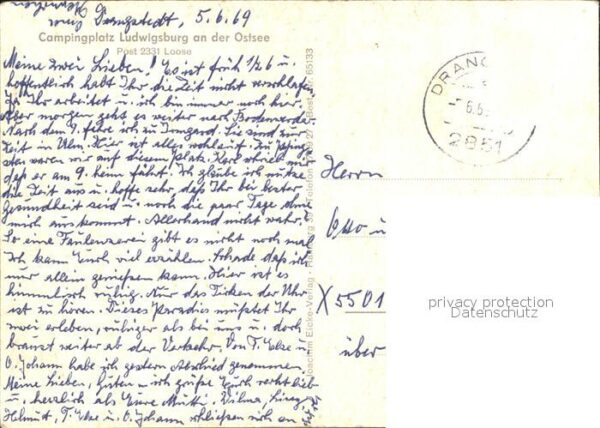 Drangstedt, 5.6.69
Campingplatz Ludwigsburg an der Ostsee
Post 2331 Loose
Meine zwei Lieben! Es ist früh 1/2 6 u.
hoffentlich habt Ihr die Zeit nicht verschlafen.
Ja Ihr arbeitet u. ich bin immer noch hier.
Aber morgen geht es weiter nach Bodenwerder.
Nach dem 9. fahre ich zu Irmgard. Sie sind zur
Zeit in Ulm. Hier ist alles wohlauf. Zu Pfing-
sten waren wir auf diesem Platz. Karl schrieb mir
daß er am 9. heim fährt. Ich glaube ich nütze
die Zeit aus u. hoffe sehr, daß Ihr bei bester
Gesundheit seid u. noch die paar Tage ohne
mich auskommt. Allerhand nicht wahr?
So eine Faulenzerei gibt es nicht noch mal
Ich kann Euch viel erzählen. Schade daß ich
nur allein genießen kann. Hier ist es
himmlisch ruhig. Nur das Ticken der Uhr
ist zu hören. Dieses Paradies müßtet Ihr
zwei erleben, ruhiger als bei uns u. doch
braust weiter ab der Verkehr. Von T. Else u.
O. Johann habe ich gestern Abschied genommen.
Meine Lieben, Guten – ich grüße Euch recht lieb
u. herzlich als Eure Mutti. Vilma,
Helmut, T. Else u. O. Johann schließen sich an
DRANG
6.6.
2851
Herrn
Otto u
X5501
über
privacy protection
Datenschutz
Joachim Eicke-Verlag
Telefon
65133